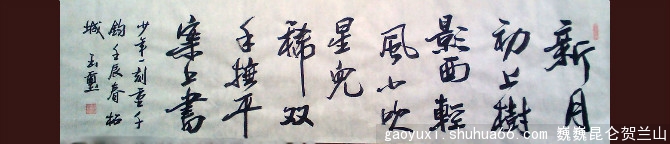 新月
初上樹
影西輕
風小吹
星兒
稀双
手撫平
案上書
少年一刻重千
鈞壬辰春柘
城玉璽
gaoyuxi.shuhua66.com 巍巍昆仑贺兰山